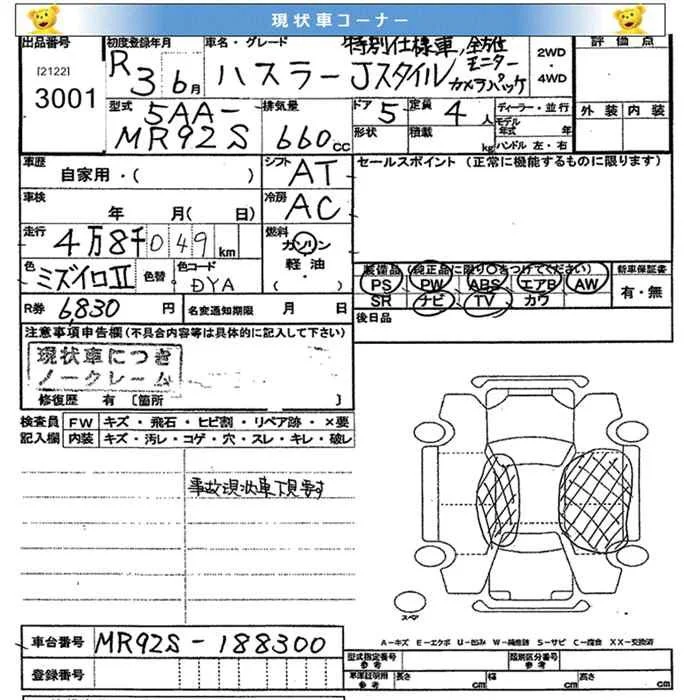 現状車コーナー
出品番号
[2122]
3001
初度登録年月
R3 6月
車名・グレード
特別仕様車、全方位
モニター
カメラパッケ
ハスラー Jスタイル
2WD
・
4WD
評価点
外装 内装
型式
5AA-
MR92S
排気量
660 CC
ドア 5
定員 4 人
形状
積載 kg
ディーラー・並行
モデル
年式 年
ハンドル 左・右
車歴
自家用・( )
シフト AT
セールスポイント (正常に機能するものに限ります)
車検
年 月( 日)
冷房 AC
走行
4万8千049 km
燃料
ガソリン
軽油・
( )
色
ミズイロII
色替
色コード
DYA
装備品(純正品に限り○をつけてください)
PS PW ABS エアB AW
SR ナビ TV カワ
新車保証書
有・無
R券 6,830 円
名変通知期限 月 日
後日品
注意事項申告欄(不具合内容等は具体的に記入して下さい)
現状車につき
ノークレーム
修復歴 有 [箇所 ]
検査員
記入欄
FW キズ・飛石・ヒビ割・リペア跡・×要
内装 キズ・汚レ・コゲ・穴・スレ・キレ・破レ
事故現状車下見要す
スペア
A-キズ E-エクボ U-凹ミ W-補修跡 S-サビ C-腐食 XX-交換済
車台番号 MR92S-188300
登録番号
型式指定番号
参考
類別区分番号
参考
車庫証明用
参考
長さ cm
幅 cm
高さ cm